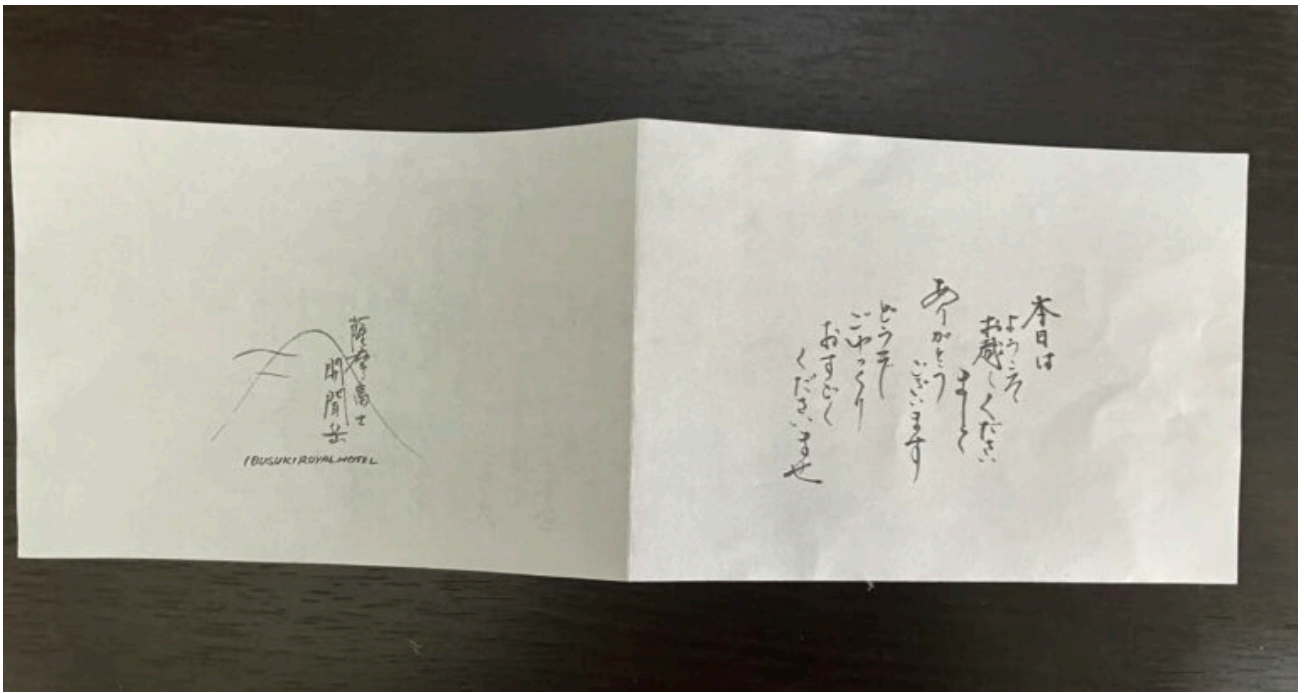 本日は
ようこそ
お越しください
まして
ありがとう
ございます
どうぞ
ごゆっくり
おすごし
くださいませ
薩摩富士
開聞岳
IBUSUKI ROYAL HOTEL